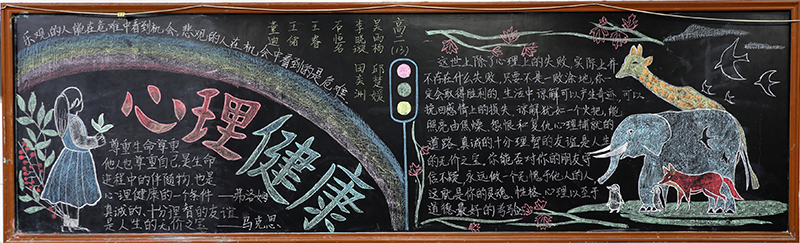 乐观的人能在危难中看到机会,悲观的人在机会中看到的是危难
心理健康
尊重生命尊重
他人也尊重自己是生命
进程中的伴随物,也是
心理健康的一个条件
——弗洛姆
真诚的、十分理智的友谊
是人生的无价之宝
——马克思
高二
(13)
王睿
王储
董迪
这世上除了心理上的失败,实际上并
不存在什么失败,只要不是一败涂地,你一
定会取得胜利的。生活中谅解可以产生奇迹,可以
挽回感情上的损失,谅解犹如一个火把,能
照亮由焦燥、怨恨和复仇心理铺就的
道路。真诚的十分理智的友谊是人生
的无价之宝。你能否对你的朋友守
信不疑,永远做一个无愧于他人的人,
这就是你的灵魂、性格、心理以至于
道德最好的考验。